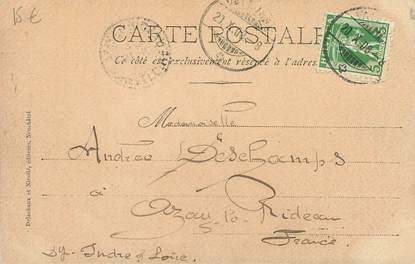 15 €
CARTE POSTALE
Ce côté est exclusivement réservé à l'adresse
Mademoiselle
Andrée Deschamps
à
Azay-le-Rideau
France
Indre & Loire.
Delachaux et Niestlé, éditeurs, Neuchâtel